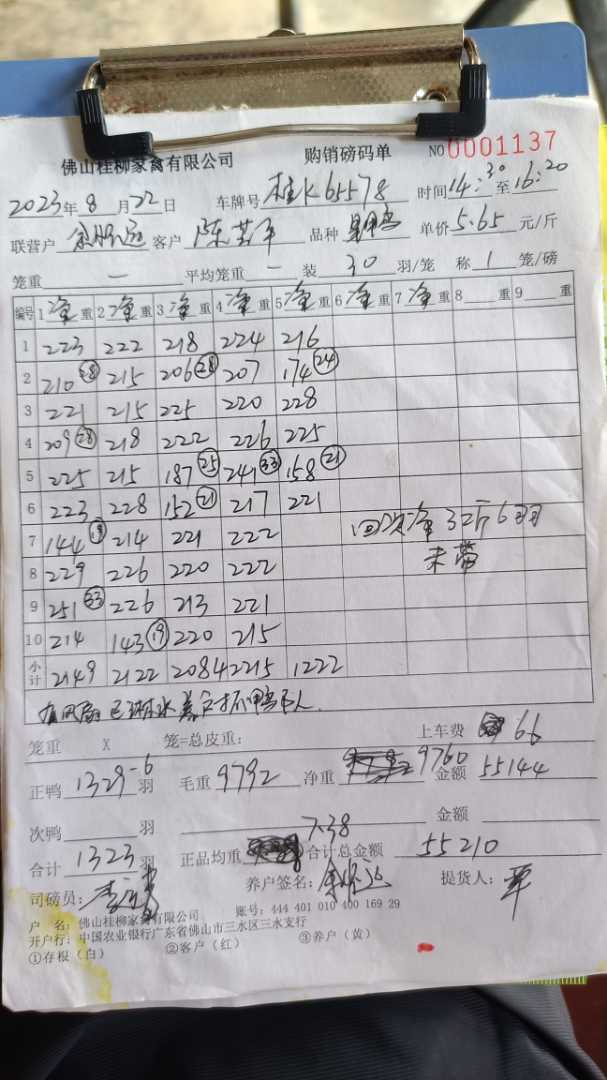 佛山桂柳家禽有限公司 购销磅码单 NO 0001137
2023年8月22日 车牌号桂K65578 时间14:30至16:20
联营户 客户陈 品种 单价5.65元/斤
笼重一 平均笼重一 装30羽/笼 称1笼/磅
编号 1净重 2净重 3净重 4净重 5净重 6净重 7净重 8重 9重
1 223 222 218 224 216
2 210(28) 215 206(28) 207 174(24)
3 221 215 225 220 228
4 209(28) 218 222 226 225
5 225 215 187(25) 241(33) 158(21)
6 223 228 152(21) 217 221
7 144(19) 214 221 222
回收净3斤6羽
8 229 226 220 222
未带
9 251(33) 226 213 221
10 214 143(19) 220 215
小计 2149 2122 2084 2215 1222
有风扇 已淋水 养户抓鸭工人.
笼重 X 笼=总皮重: 上车费 66
正鸭1329-6羽 毛重9792 净重9760 金额55144
次鸭 羽 7.38 金额
合计1323羽 正品均重 合计总金额55210
司磅员: 养户签名: 提货人:覃
户 名:佛山桂柳家禽有限公司 账号:444 401 010 400 169 29
开户行:中国农业银行广东省佛山市三水区三水支行
①存根(白) ②客户(红) ③养户(黄)